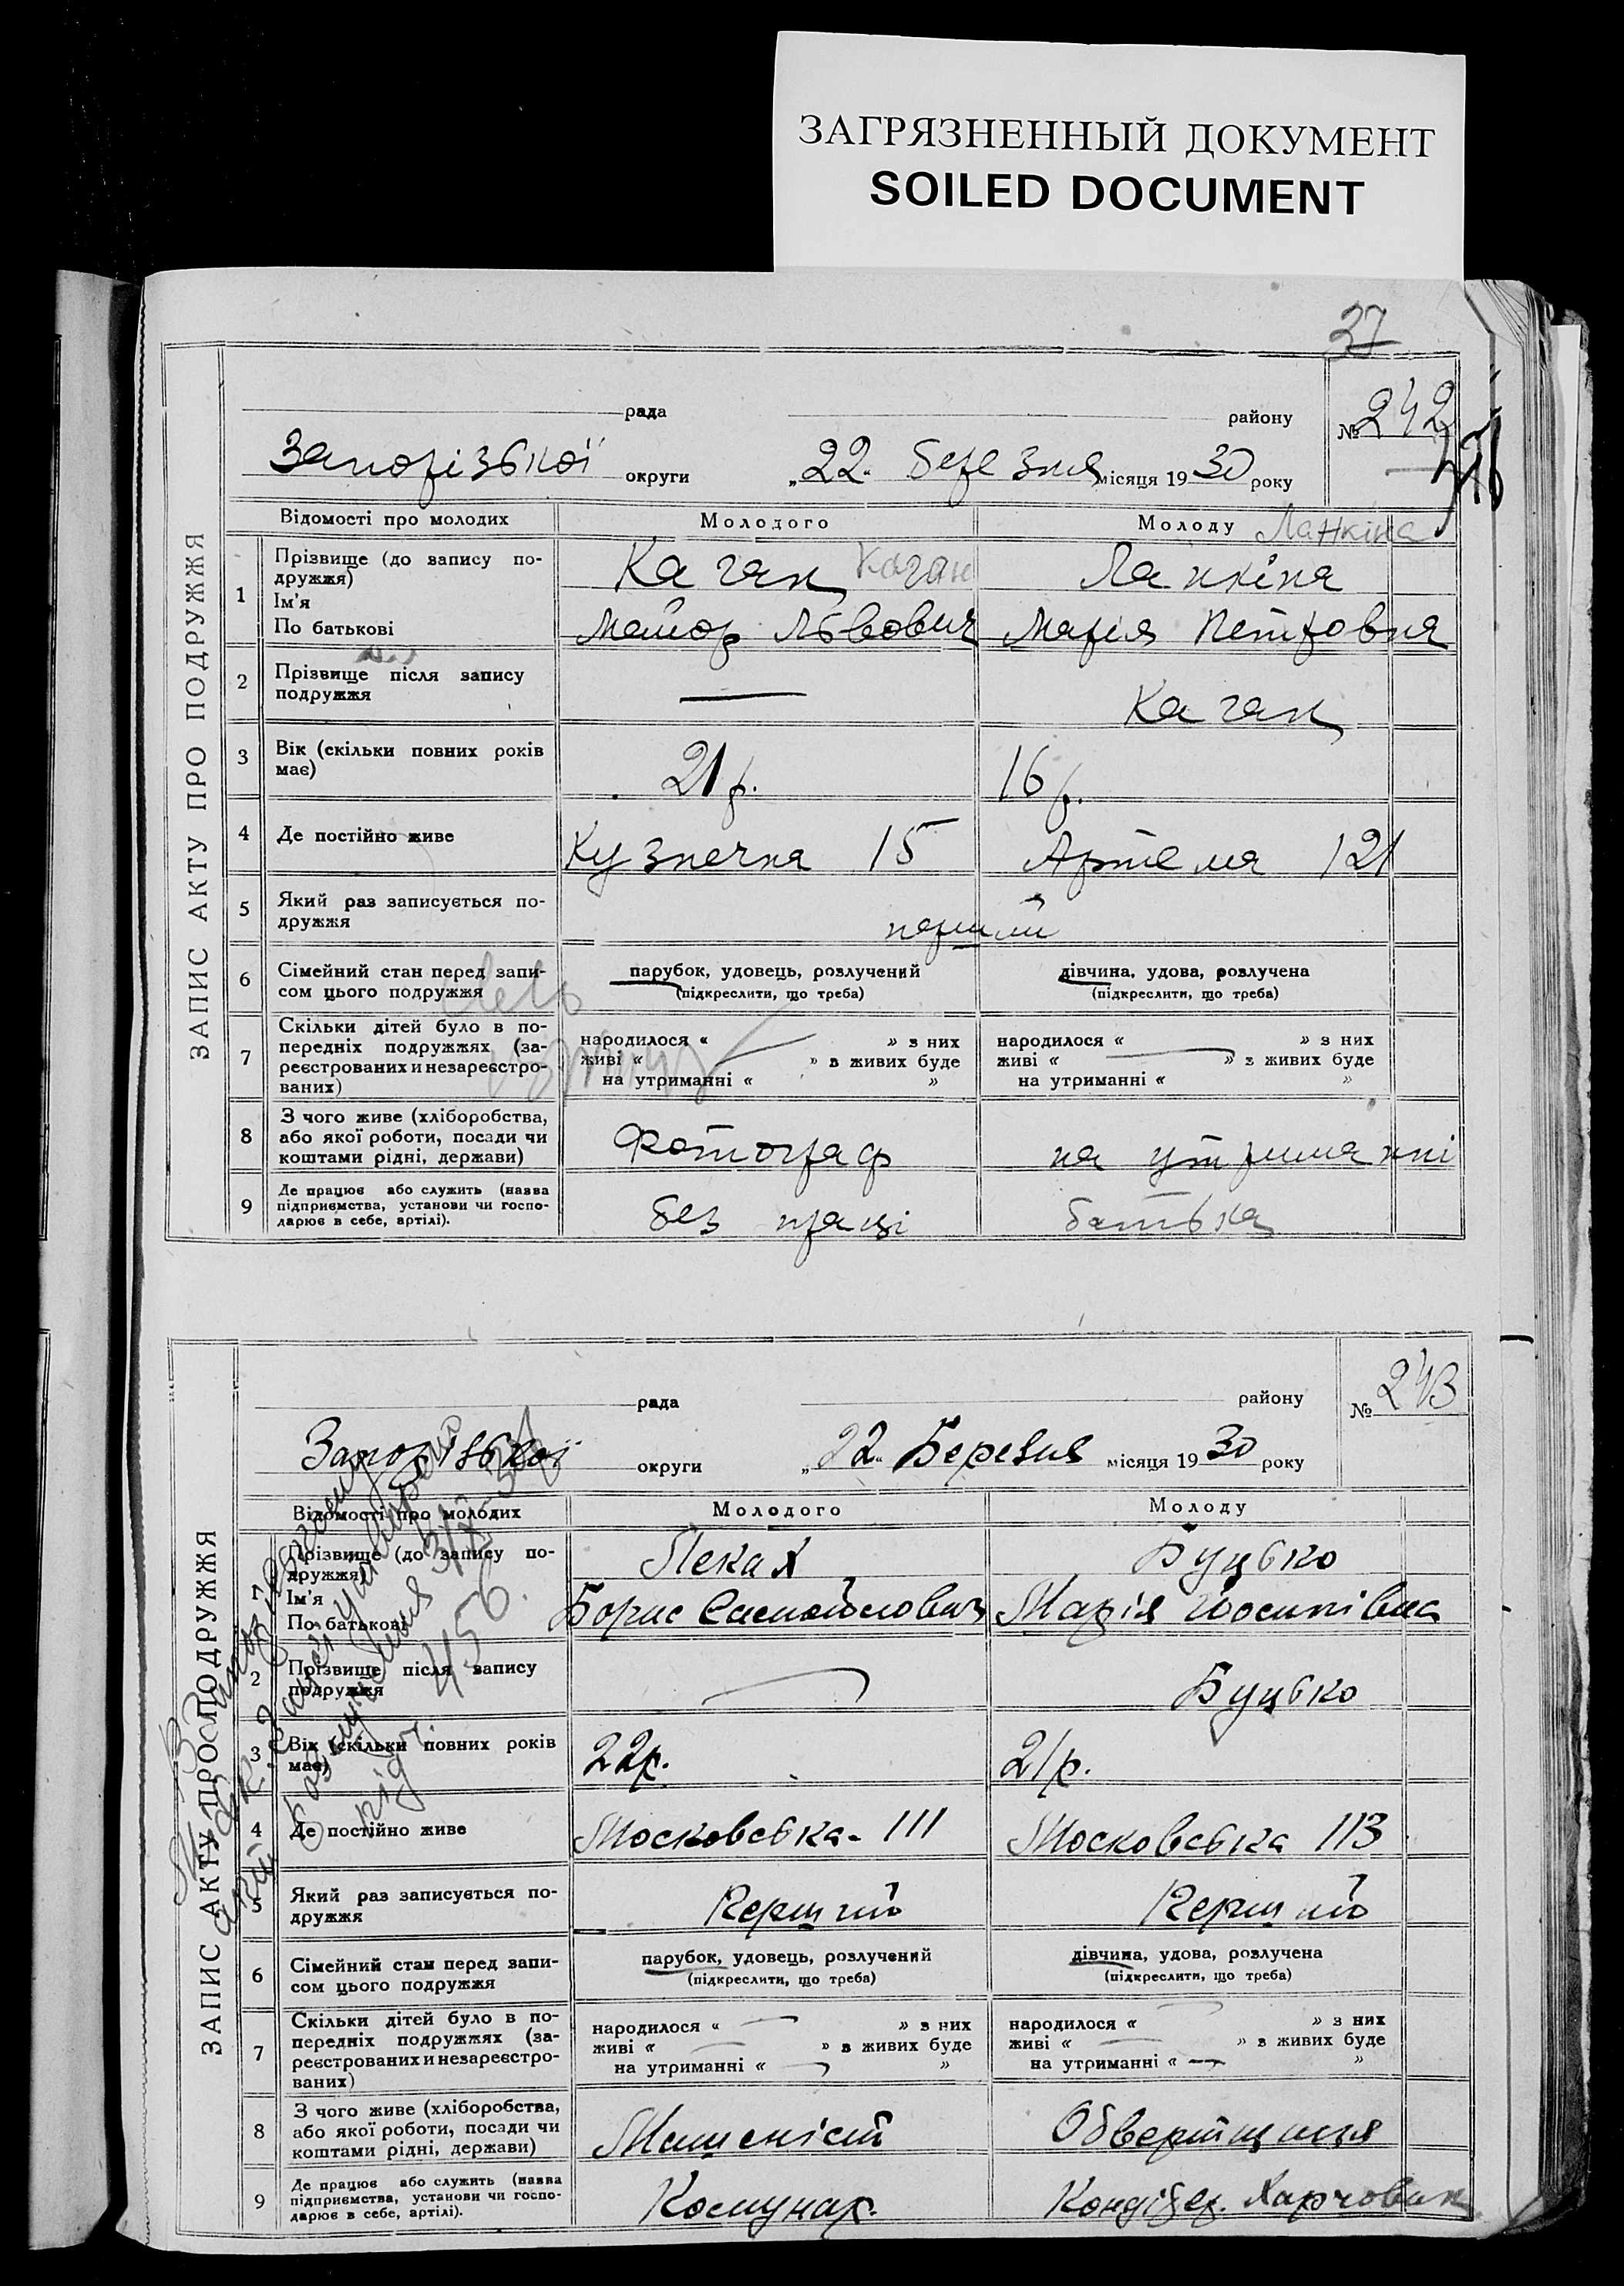 ЗАГРЯЗНЕННЫЙ ДОКУМЕНТ
SOILED DOCUMENT
37
ЗАПИС АКТУ ПРО ПОДРУЖЖЯ
рада району
№ 242
Запорізької округи „22“ березня місяця 1930 року
Відомості про молодих Молодого Молоду Ланкіна
1 Прізвище (до запису по-
дружжя) Каган Коган Ланкіна
Ім'я
По батькові Мейор Львович Марія Петровна
2 Прізвище після запису
подружжя — Каган
3 Вік (скільки повних років
має) 21 р. 16 р.
4 Де постійно живе Кузнечна 15 Артема 121
5 Який раз записується по-
дружжя перший
6 Сімейний стан перед запи-
сом цього подружжя
парубок, удовець, розлучений
(підкреслити, що треба)
дівчина, удова, розлучена
(підкреслити, що треба)
7 Скільки дітей було в по-
передніх подружжях (за-
реєстрованих и незареєстро-
ваних)
народилося « » з них
живі « » в живих буде
на утриманні « »
народилося « » з них
живі « » з живих буде
на утриманні « »
8 З чого живе (хліборобства,
або якої роботи, посади чи
коштами рідні, держави) Фотограф на утриманні
9 Де працює або служить (назва
підприємства, установи чи госпо-
дарює в себе, артілі). без праці батька
ЗАПИС АКТУ ПРО ПОДРУЖЖЯ
рада району
№ 243
Запорізької округи „22“ Березня місяця 1930 року
Відомості про молодих Молодого Молоду
1 Прізвище (до запису по-
дружжя) Буцько
Ім'я
По батькові Борис Самойлович Марія Йосипівна
2 Прізвище після запису
подружжя — Буцько
3 Вік (скільки повних років
має) 22 р. 21 р.
4 Де постійно живе Московська - 111 Московська 113
5 Який раз записується по-
дружжя Перший Перший
6 Сімейний стан перед запи-
сом цього подружжя
парубок, удовець, розлучений
(підкреслити, що треба)
дівчина, удова, розлучена
(підкреслити, що треба)
7 Скільки дітей було в по-
передніх подружжях (за-
реєстрованих и незареєстро-
ваних)
народилося « » з них
живі « » в живих буде
на утриманні « »
народилося « » з них
живі « » в живих буде
на утриманні « »
8 З чого живе (хліборобства,
або якої роботи, посади чи
коштами рідні, держави) Машиніст Обвертщиця
9 Де працює або служить (назва
підприємства, установи чи госпо-
дарює в себе, артілі). Комунар. Кондітер. Харчовик
456.